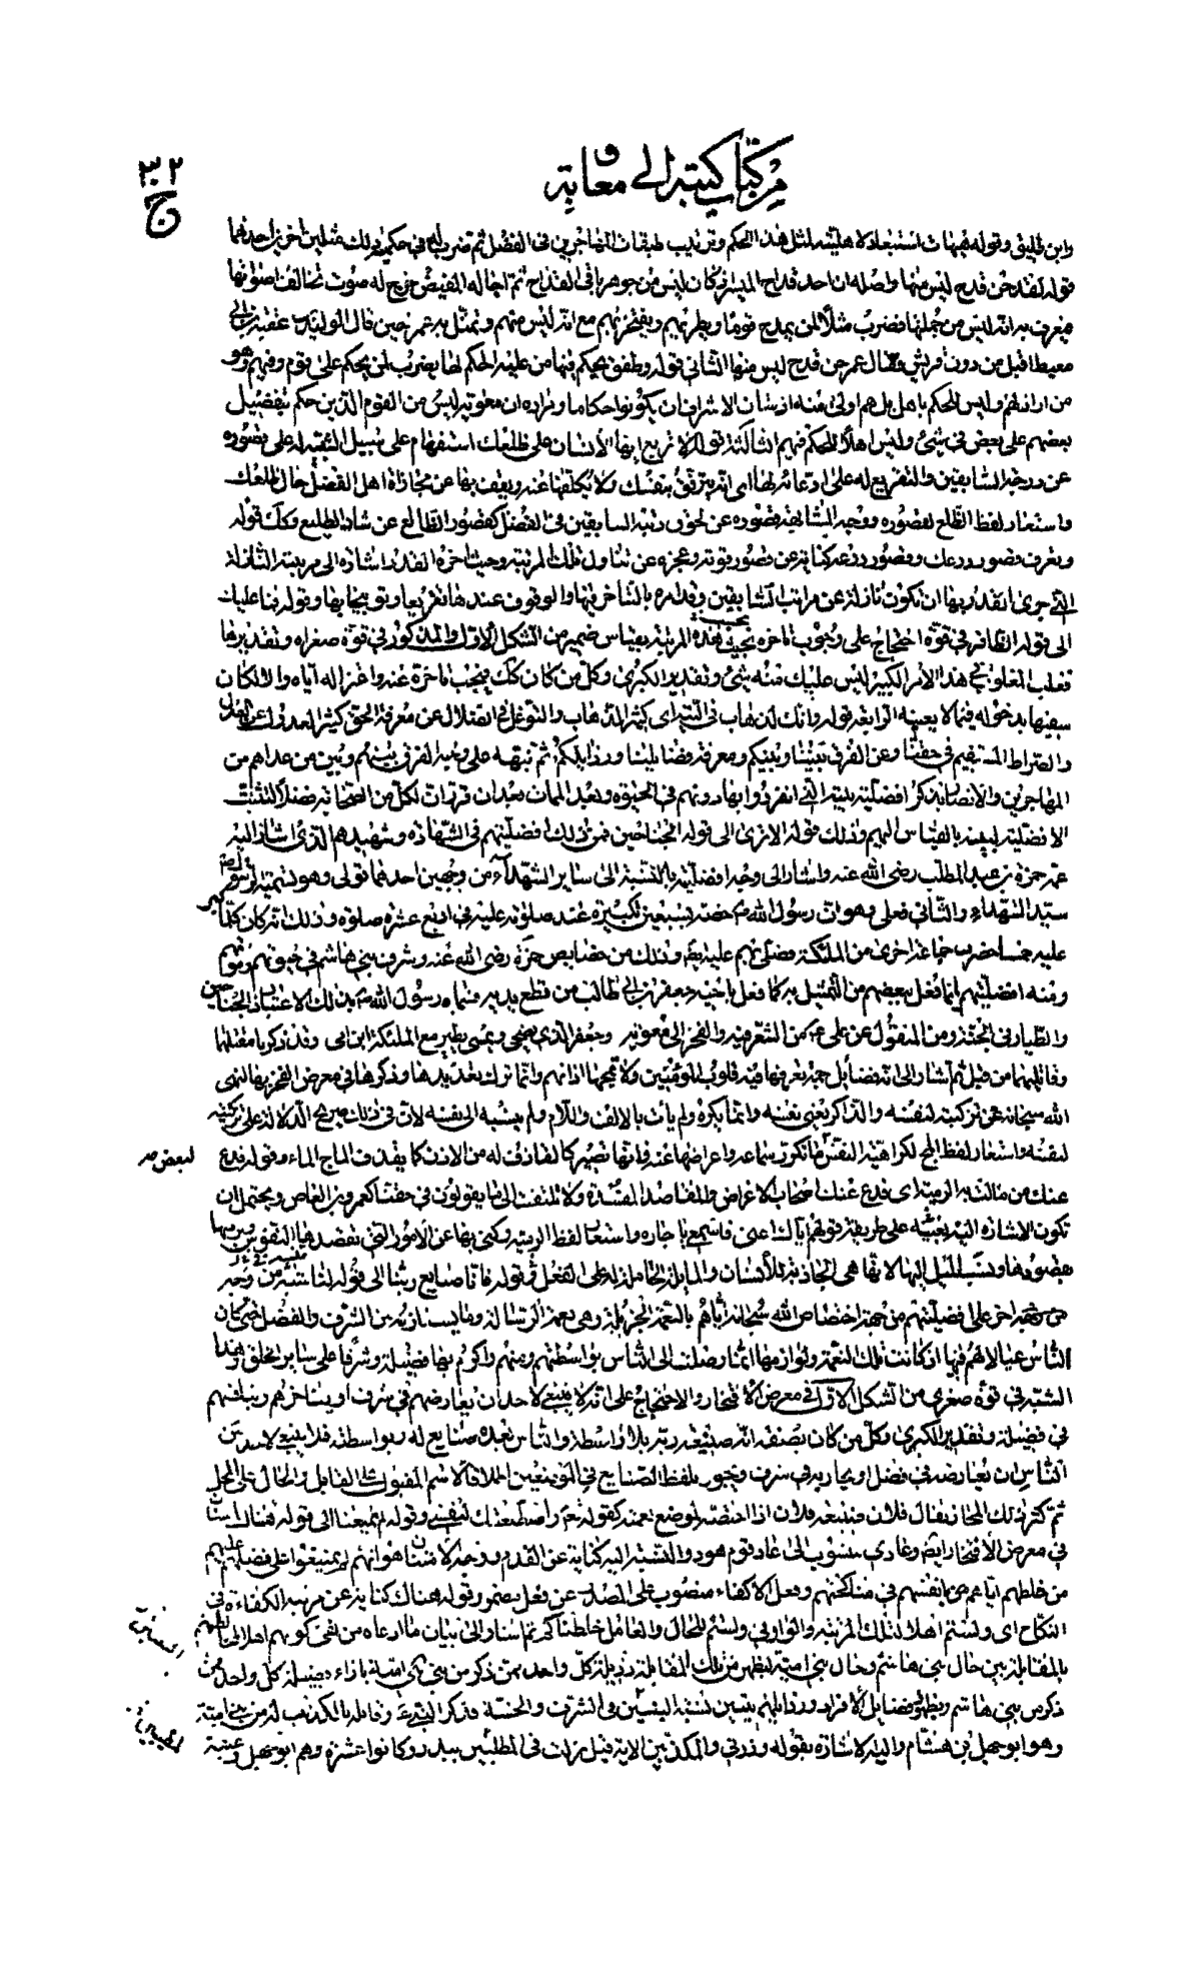 من كتاب كتبه الى معاوية
٣٠٢
ج
وابن طليق وقوله هيهات استبعاد لاهليته لمثل هذا الحكم وترتيب طبقات المهاجرين في الفضل ثم ضرب له في حكمه ذلك مثلين اخرين احدهما
قوله لقد حن قدح ليس منها واصله ان احد قداح الميسر اذا كان ليس من جوهر باقي القداح ثم اجاله المفيض خرج له صوت تخالف اصواتها
فيعرف به انه ليس من جملتها فضرب مثلاً لمن يمدح قوما ويطريهم ويفتخر بهم مع انه ليس منهم وتمثل به عمر حين قال الوليد بن عقبة بن ابي
معيط اقتل من دون قريش فقال عمر حن قدح ليس منها الثاني قوله وطفق يحكم فيها من عليه الحكم لها يضرب لمن يحكم على قوم وفيهم وهو
من اراذلهم وليس للحكم باهل بل هم اولى منه اذ شان الاشراف ان يكونوا حكاما ومراده ان معوية ليس من القوم الذين حكم بتفضيل
بعضهم على بعض في شيء وليس اهلاً للحكم فيهم الثالثة قوله الا تربع ايها الانسان على ظلعك استفهام على سبيل التنبيه له على قصوره
عن درجة السابقين والتقريع له على ادعائه لها اي انه يترفق بنفسك ولا تكلفها عنه ويقف بها عن مجاراة اهل الفضل حال ظلعك
واستعار لفظ الظلع لقصوره ووجه المشابهة قصوره عن لحوق رتبة السابقين في الفضل كقصور الظالع عن شاو الضليع وكك قوله
وتعرف قصور ذرعك وقصور ذرعه كناية عن قصور قوته وعجزه عن تناول تلك المرتبة وحيث اخره القدر اشارة الى مرتبته النازلة
التي جرى القدر بها ان تكون نازلة عن مراتب السابقين وقد امره بالتاخر فيها والوقوف عندها تقريعا وتوبيخا بها وقوله فما عليك
الى قوله الظافر في قوة احتجاج على وجوب تاخره بحيث هذه المرتبة بقياس ضمير من الشكل الاول والمذكور في قوة صغراه وتقديرها
فغلب المغلوب في هذا الامر الكبير ليس عليك منه شيء وتقدير الكبرى وكل من كان كك فيجب تاخره عنه واعتزاله اياه والا لكان
سفيها بدخوله فيما لا يعنيه الرابعة قوله وانك لذهاب في التيه اي كثير الذهاب والتوغل في الضلال عن معرفة الحق كثير العدول عن العدل
والصراط المستقيم في حقنا وعن الفرق بيننا وبينكم ومعرفة فضائلنا ورذائلكم ثم نبهه على وجه الفرق بينهم وبين من عداهم من
المهاجرين والانصار بذكر افضلية بيته التي انفردوا بها دونهم في الحيوة وبعد الممات بعد ان قرر ان لكل من الصحابة فضلاً لتثبت
الافضلية لبيته بالقياس اليهم وذلك قوله الا ترى الى قوله الجناحين فمن ذلك افضليتهم في الشهادة وشهيدهم الذي اشار اليه
عمه حمزة بن عبد المطلب رضي الله عنه واشار الى وجه افضليته بالنسبة الى ساير الشهداء من وجهين احدهما قولي وهو تسمية الرسول له
سيد الشهداء والثاني فعلي وهو ان رسول الله خصه بسبعين تكبيرة عند صلوته عليه في اربع عشرة صلوة وذلك انه كان كلما كبر
عليه خمسا حضرت جماعة اخرى من الملئكة فصلى بهم عليه ايضا وذلك من خصايص حمزة رضي الله عنه وشرف بني هاشم في حيوتهم وموتهم
ومنه افضليتهم بما فعل ببعضهم من التمثيل به كما فعل باخيه جعفر بن ابي طالب من قطع يديه فسماه رسول الله بذلك الاعتبار ذا الجناحين
والطيار في الجنة ومن المنقول عن علي من الشعر فيه والفخر الى معوية وجعفر الذي يضحي ويمسي يطير مع الملئكة ابن امي وقد ذكرنا مقتلهما
وقاتليهما من قبل ثم اشار الى ان له فضايل جمة تعرفها فيه قلوب المؤمنين ولا تمجها اذانهم وانما ترك تعديدها وذكرها في معرض الفخر بها لنهي
الله سبحانه عن تزكيته لنفسه والذاكر يعني نفسه وانما نكره ولم يات بالالف واللام ولم ينسبه الى نفسه لان في ذلك صريح الدلالة على تزكيته
لنفسه واستعار لفظ المج لكراهية النفس ما تكرر سماعه واعراضها عنه فانها تصير كالقاذف له من الاذن كما يقذف الماج الماء وقوله فدع
لبعض
عنك من مالت به الرمية اي فدع عنك اصحاب الاغراض والمقاصد المفسدة ولا تلتفت الى ما يقولون في حقنا كعمرو بن العاص ويحتمل ان
تكون الاشارة اليه بعينه على طريقة قولهم اياك اعني فاسمعي يا جاره واستعار لفظ الرمية وكنى بها عن الامور التي تقصدها النفوس وترميها
بقصودها ونسب الميل اليها لانها هي الجاذبة للانسان والمايلة الحاملة له على الفعل وقوله فانا صنايع ربنا الى قوله لنا تنبيه من وجه
اخر على افضليتهم من جهة اختصاص الله سبحانه اياهم بالنعمة الجزيلة وهي نعمة الرسالة وما يستلزمه من الشرف والفضل حتى كان
الناس عيالا لهم فيها اذ كانت تلك النعمة ولوازمها انما وصلت الى الناس بواسطتهم ومنهم واكرم بها فضيلة وشرفا على ساير الخلق وهذا
التشبيه في قوة صغرى من الشكل الاول في معرض الافتخار والاحتجاج على انه لا ينبغي لاحد ان يعارضهم في شرف او يفاخرهم
في فضيلة وتقدير الكبرى وكل من كان بصفة انه صنيعة ربه بلا واسطة والناس بعده صنايع له وبواسطته فلا ينبغي لاحد من
الناس ان يعارضه في فضل او يجاريه في شرف وتجوز بلفظ الصنايع في الموضعين اطلاقا لاسم المقبول على القابل والحال على المحل
ثم كثر ذلك المجاز فقال فلان صنيعة فلان اذا اختصه لموضع نعمته كقوله تعالى واصطنعتك لنفسي وقوله لم يمنعنا الى قوله هناك
في معرض الافتخار ايضا وعادي منسوب الى عاد قوم هود والنسبة اليه كناية عن القدم ووجه الامتنان هو انهم لم يمتنعوا على فضلهم عليهم
من خلطهم اياهم بانفسهم في مناكحتهم وفعل الاكفاء منصوب على المصدر عن فعل مضمر وقوله هناك كناية عن مرتبة الكفاءة في
النكاح اي ولستم اهلا لتلك المرتبة والواو في ولستم للحال والعامل خلطناكم ثم اشار الى بيان ما ادعاه من نفي كونهم اهلا لمخالطتهم
بالمقابلة بين حال بني هاشم وحال بني امية ليظهر من تلك المقابلة رذيلة كل واحد ممن ذكر من بني امية بازاء فضيلة كل واحد ممن
ذكر من بني هاشم وبظهور فضايل الافراد ورذايلهم يتبين نسبة البيتين في الشرف والخسة فذكر النبي وقابله بالمكذب له من بني امية
وهو ابو جهل بن هشام واليه الاشارة بقوله وذرني والمكذبين الاية قيل نزلت في المطعمين ببدر وكانوا عشرة وهم ابو جهل وعتبة